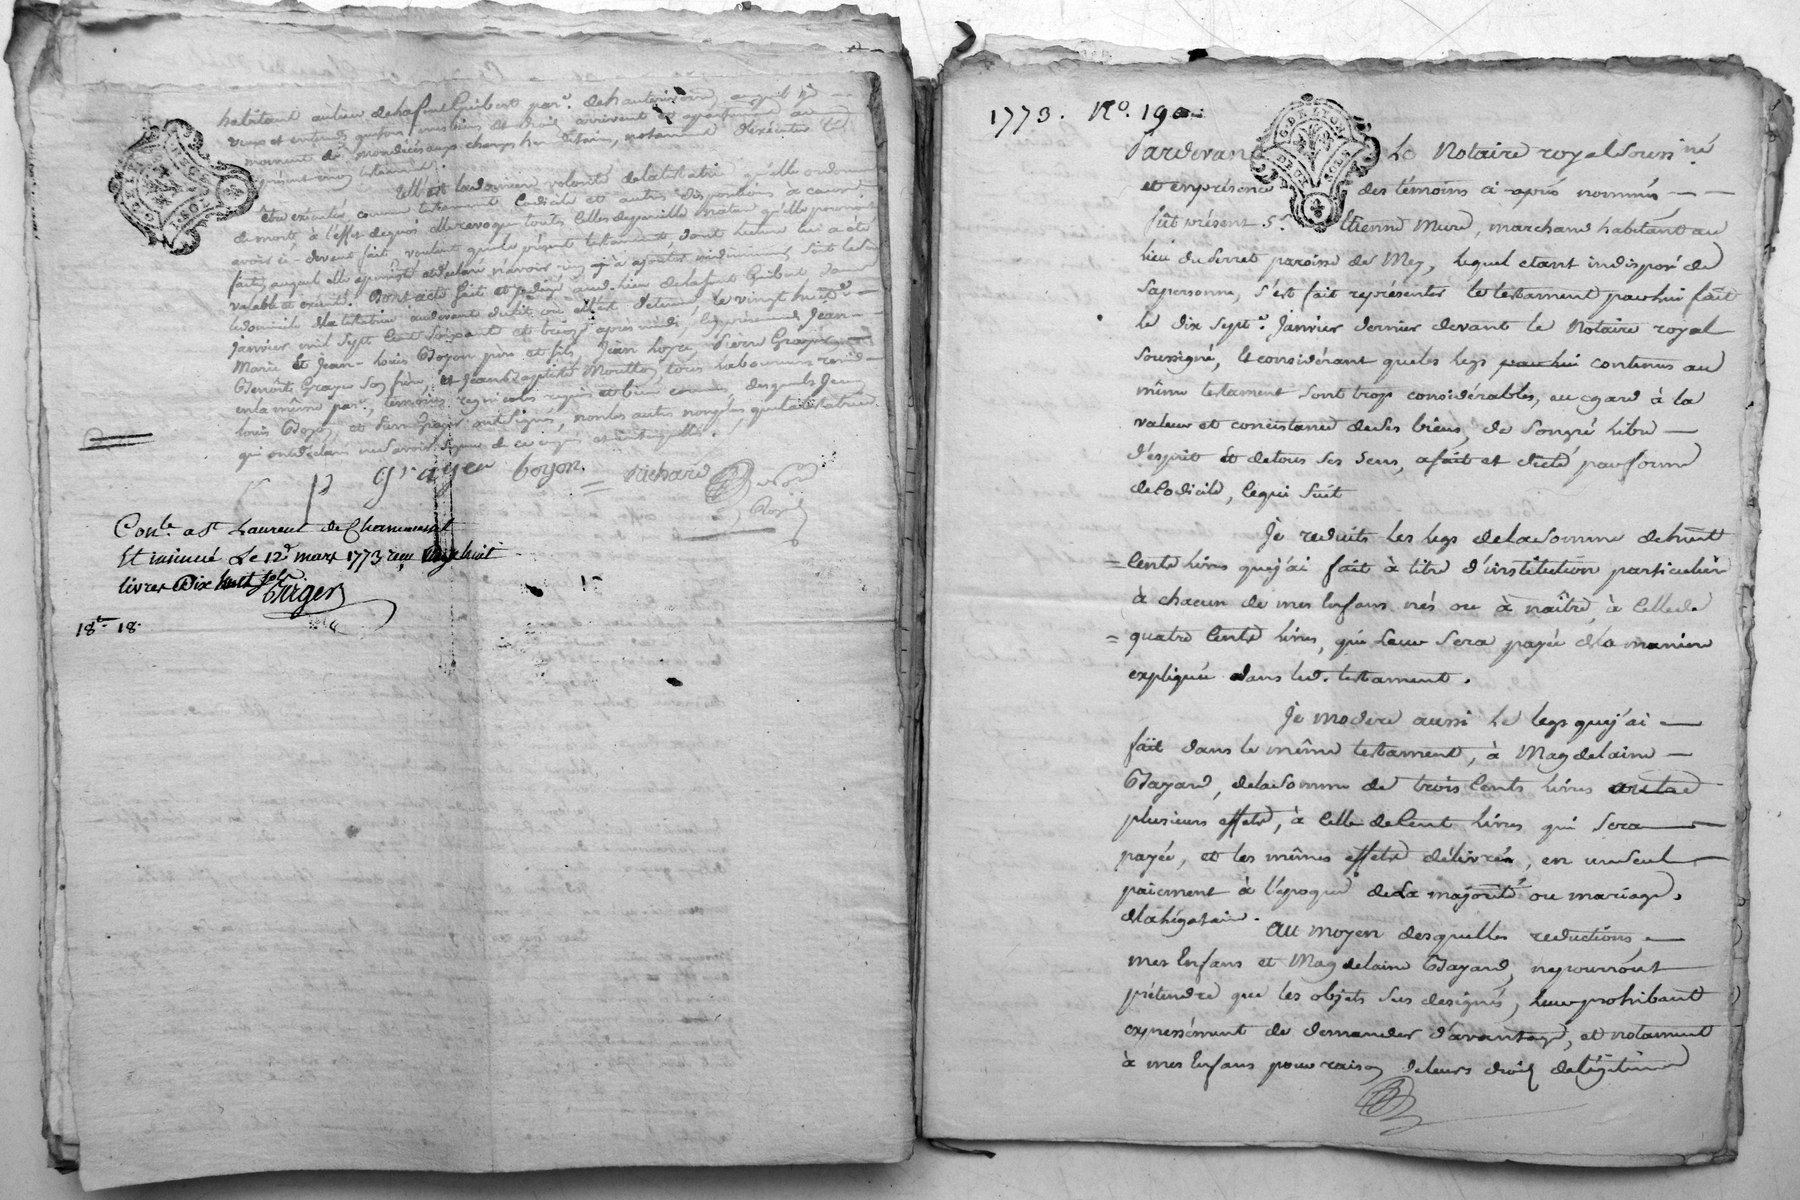 habitant au lieu de lafont Guibert par.e de hauterivoire, auquel je
veux et entends que tous mes biens et droits arrivent et appartiennent au
moment de mon décès aux charges héréditaires, notamment d'exécuter le
présent mon testament.
Telle est la dernière volonté de la testatrice qu'elle ordonne
être exécutée comme testament, Codicile et autres dispositions à cause
de mort, à l'effet de quoi elle revoque toutes celles de pareille nature qu'elle pourroit
avoir ci-devant fait, voulant que le présent testament dont lecture lui a été
faite, auquel elle a persisté et déclaré n'avoir rien à ajouter ni diminuer, soit le seul
valable et exécuté. Dont acte fait et rédigé aud. lieu de lafont Guibert dans
le domicile de la testatrice au devant du lit où elle est detenue, le vingt huit
Janvier mil sept cent soixante et treize après midi, les présences Jean-
Marie et Jean-Louis Boyon père et fils, Jean Loyre, Pierre Grayer
Benoît Grayer son frère, et Jean Baptiste Moulton, tous laboureurs resid.
en la même par.e, témoins regnicoles requis et bien connus, desquels Jean
Louis Boyon, et Pierre Grayer ont signé, non les autres, non plus que la testatrice
qui ont déclaré ne savoir signer de ce enquis et interpellés.
P grayer boyon = Richard
Con.le a St Laurent de Chamousset
Et insinué Le 12 mars 1773 reçu Dixhuit
livres Dix huit sols
Triger
18.lt 18.
1773. No. 190
Pardevant Le Notaire royal soussigné
et en présence des témoins ci-après nommés
fût présent S.r Etienne Mure, marchand habitant au
lieu du Serret paroisse de Mey, lequel etant indisposé de
sa personne, s'est fait représenter le testament par lui fait
le dix sept.e Janvier dernier devant le Notaire royal
soussigné, & considérant que les legs par lui contenus au
même testament sont trop considérables, eu egard à la
valeur et concistance de ses biens, de son gré libre
d'esprit et de tous ses sens, a fait et dicté par forme
de Codicile, ce qui suit
Je reduits les legs de la somme de huit
= Cents livres que j'ai fait à titre d'institution particulière
à chacun de mes Enfans nés ou à naître, à Celle de
= quatre Cents livres, qui leur sera payée de la manière
expliquée dans led. testament.
Je modere aussi le legs que j'ai
fait dans le même testament, à Magdelaine
Bayard, de la somme de trois Cents livres
plusieurs effets, à Celle de Cent livres qui sera
payée, et les mêmes effets délivrés, en un seul
paiement à l'époque de la majorité ou mariage,
de la légataire.
Au moyen desquelles reductions,
mes Enfans et Magdelaine Bayard, ne pourront
prétendre que les objets sus designés, leur prohibant
expressément de demander d'avantage, et notamment
à mes Enfans pour raison de leurs droits de légitime